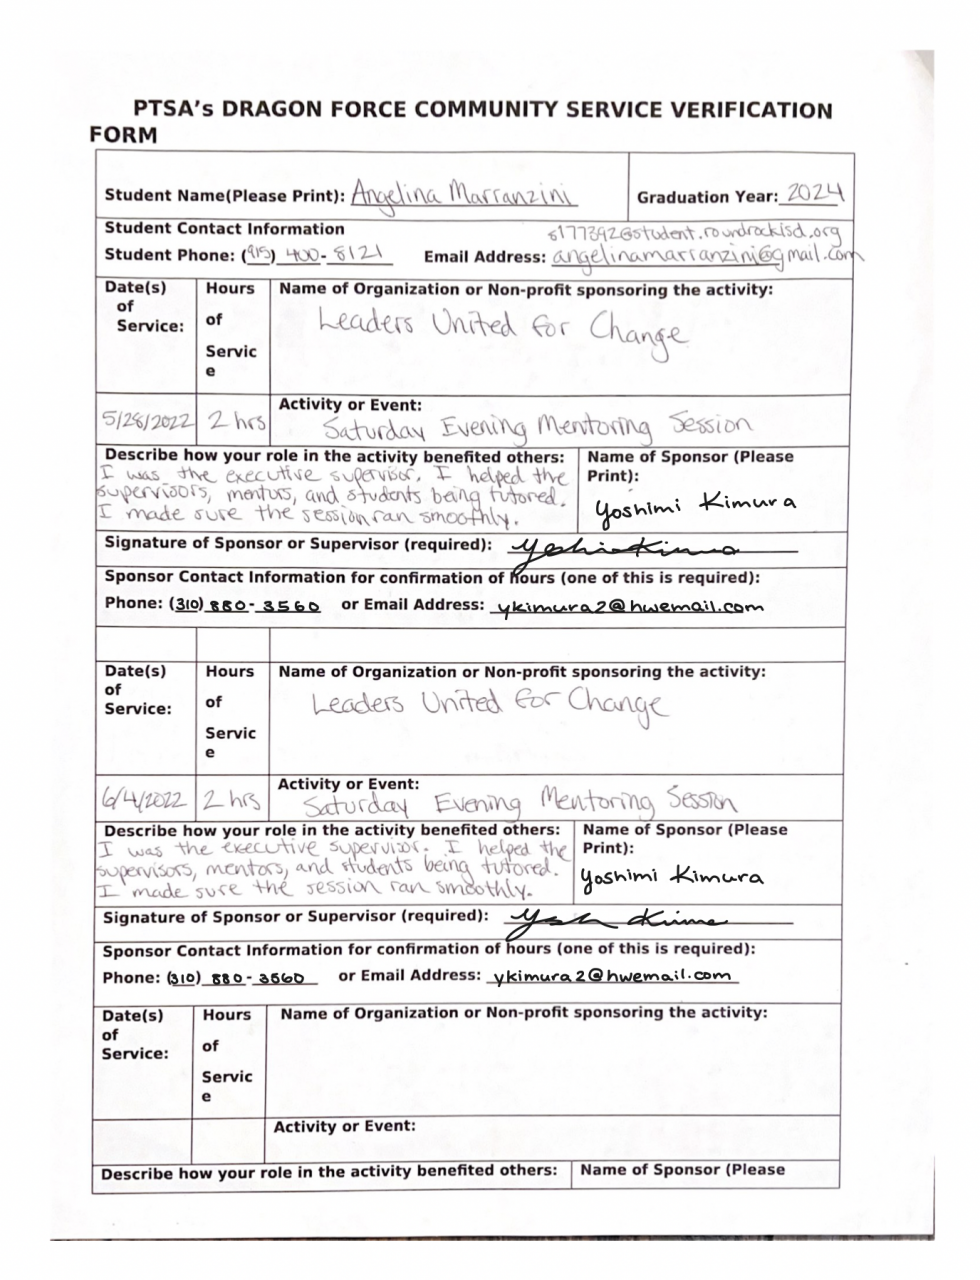 PTSA's DRAGON FORCE COMMUNITY SERVICE VERIFICATION
FORM
Student Name(Please Print): Angelina Marranzini
Graduation Year: 2024
Student Contact Information
s177392@student.roundrockisd.org
Student Phone: (915) 400-8121 Email Address: angelinamarranzini@gmail.com
Date(s)
of
Service:
Hours
of
Servic
e
Name of Organization or Non-profit sponsoring the activity:
Leaders United for Change
5/28/2022
2 hrs
Activity or Event:
Saturday Evening Mentoring Session
Describe how your role in the activity benefited others:
I was the executive supervisor. I helped the
supervisors, mentors, and students being tutored.
I made sure the session ran smoothly.
Name of Sponsor (Please
Print):
Yoshimi Kimura
Signature of Sponsor or Supervisor (required):
Sponsor Contact Information for confirmation of hours (one of this is required):
Phone: (310) 880-3560 or Email Address: ykimura2@hwemail.com
Date(s)
of
Service:
Hours
of
Servic
e
Name of Organization or Non-profit sponsoring the activity:
Leaders United For Change
6/4/2022
2 hrs
Activity or Event:
Saturday Evening Mentoring Session
Describe how your role in the activity benefited others:
I was the executive supervisor. I helped the
supervisors, mentors, and students being tutored.
I made sure the session ran smoothly.
Name of Sponsor (Please
Print):
Yoshimi Kimura
Signature of Sponsor or Supervisor (required):
Sponsor Contact Information for confirmation of hours (one of this is required):
Phone: (310) 880-3560 or Email Address: ykimura2@hwemail.com
Date(s)
of
Service:
Hours
of
Servic
e
Name of Organization or Non-profit sponsoring the activity:
Activity or Event:
Describe how your role in the activity benefited others:
Name of Sponsor (Please